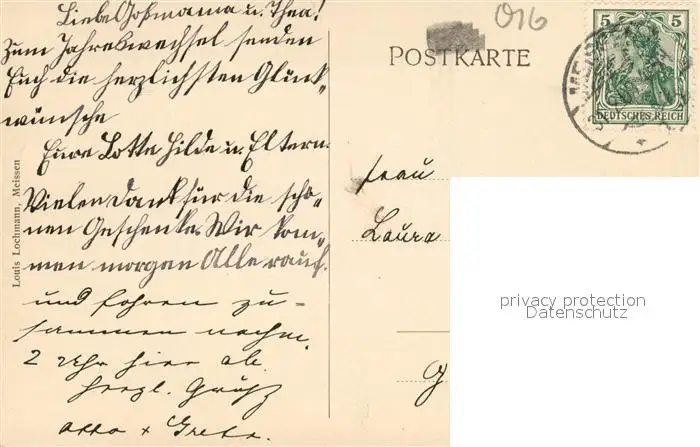 Liebe Großmama u. Thea!
Zum Jahreswechsel senden
Euch die herzlichsten Glück-
wünsche
Eure Lotte Hilde u. Eltern.
Vielen Dank für die schö-
nen Geschenke. Wir kom-
men morgen Alle rauf
und fahren zu-
sammen nachm.
2 Uhr hier ab.
Herzl. Grüße
Otto + Grete.
Louis Lochmann, Meissen
016
POSTKARTE
5 5
DEUTSCHES REICH
Frau
Laura
G
privacy protection
Datenschutz